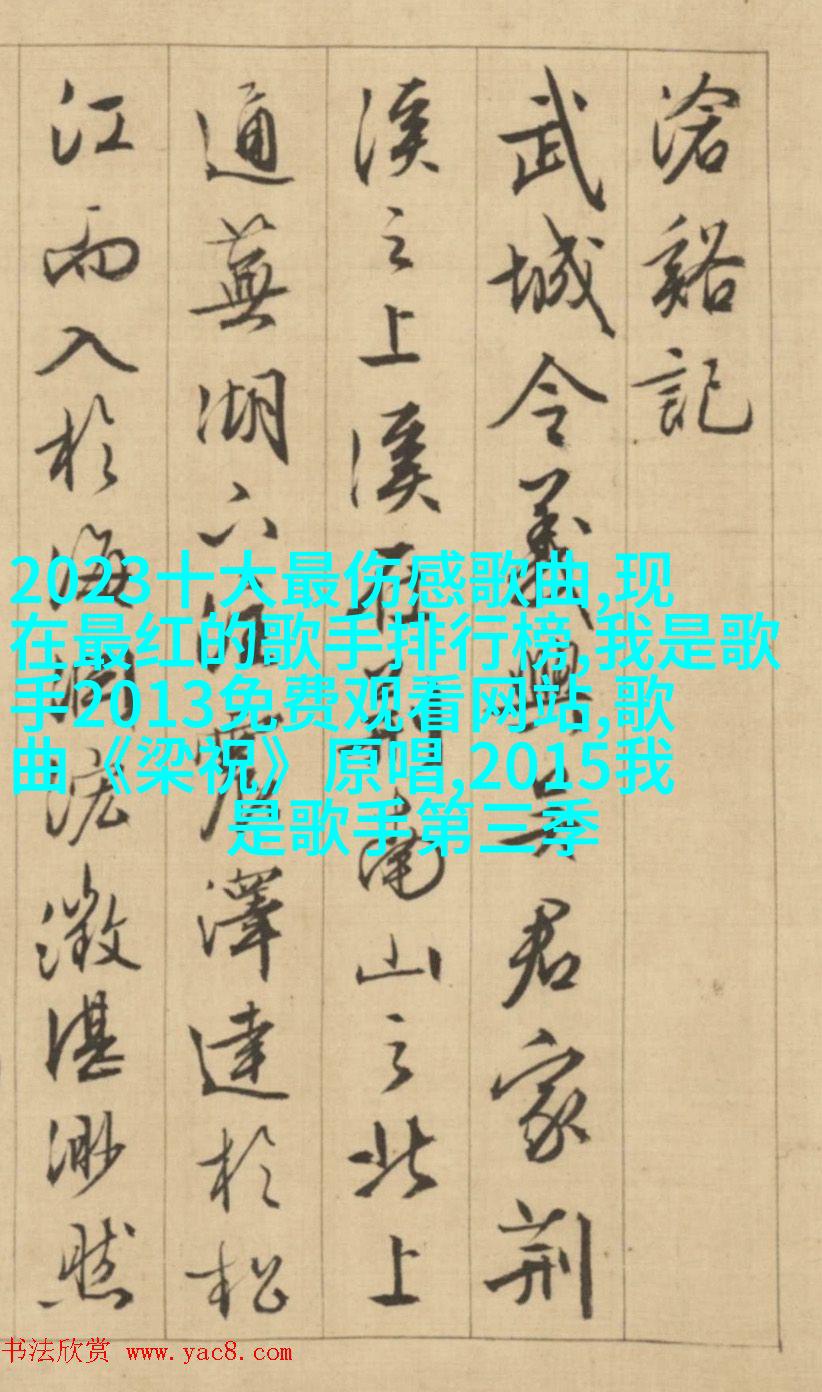 滄谿記
武城令義興吳君家荆
溪之上溪南山之北上
通蕪湖澤達於松
江而入於海澂湛渺然
2023十大最伤感歌曲,现
在最红的歌手排行榜,我是歌
手2013免费观看网站,歌
曲《梁祝》原唱,2015我
是歌手第三季
书法欣赏 www.yac8.com